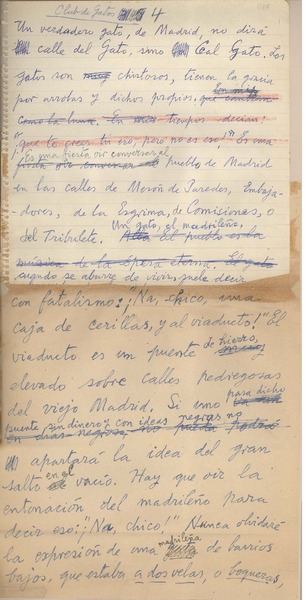 Club de Gatos 4
Un verdadero gato, de Madrid, no dirá
calle del Gato, sino Cal Gato. Los
gatos son muy chistosos, tienen la gracia
por arrobas y dichos propios, que cambian En mis
como la luna. En mis tiempos decían:
"que te crees tú eso, pero no es eso!" Es una
Es una fiesta oír conversar al
fiesta oír conversar al pueblo de Madrid
en las calles de Mesón de Paredes, Embaja-
dores, de la Esgrima, de Comisiones, o
del Tribulete. Un gato, el madrileño,
Allá El pueblo es la
música de la eterna. El gato
cuando se aburre de vivir, suele decir
con fatalismo: ¡"Na, chico, una
caja de cerillas, y al viaducto!" El
viaducto es un puente de hierro,
elevado sobre calles pedregosas
del viejo Madrid. Si uno pasa dicho
puente sin dinero y con ideas negras no
en días negros, no podrá
apartará la idea del gran
salto en el vacío. Hay que oír la
entonación del madrileño para
decir eso: ¡"Na, chico!" Nunca olvidaré
la expresión de una madrileña de barrios
bajos, que estaba a dos velas, o boqueras,